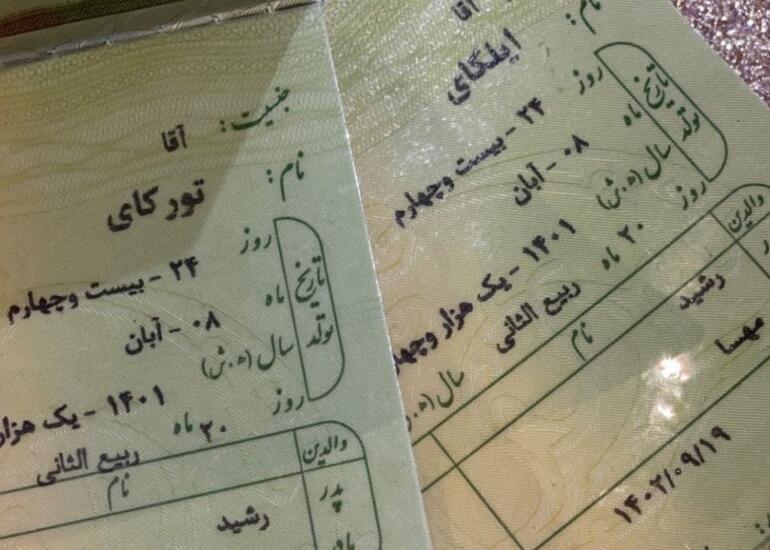 جنسیت: آقا
نام: تورکای
تاریخ تولد
روز ۲۴ - بیست وچهارم
ماه ۰۸ - آبان
سال (ه.ش) ۱۴۰۱ - یک هزار
روز ۲۰ ماه ربیع الثانی
والدین نام
پدر رشید
آقا
نام: ایلگای
تاریخ تولد
روز ۲۴ - بیست وچهارم
ماه ۰۸ - آبان
سال (ه.ش) ۱۴۰۱ - یک هزار وچهار
روز ۲۰ ماه ربیع الثانی سال
والدین نام
رشید
مهسا
۱۴۰۲/۰۹/۱۹